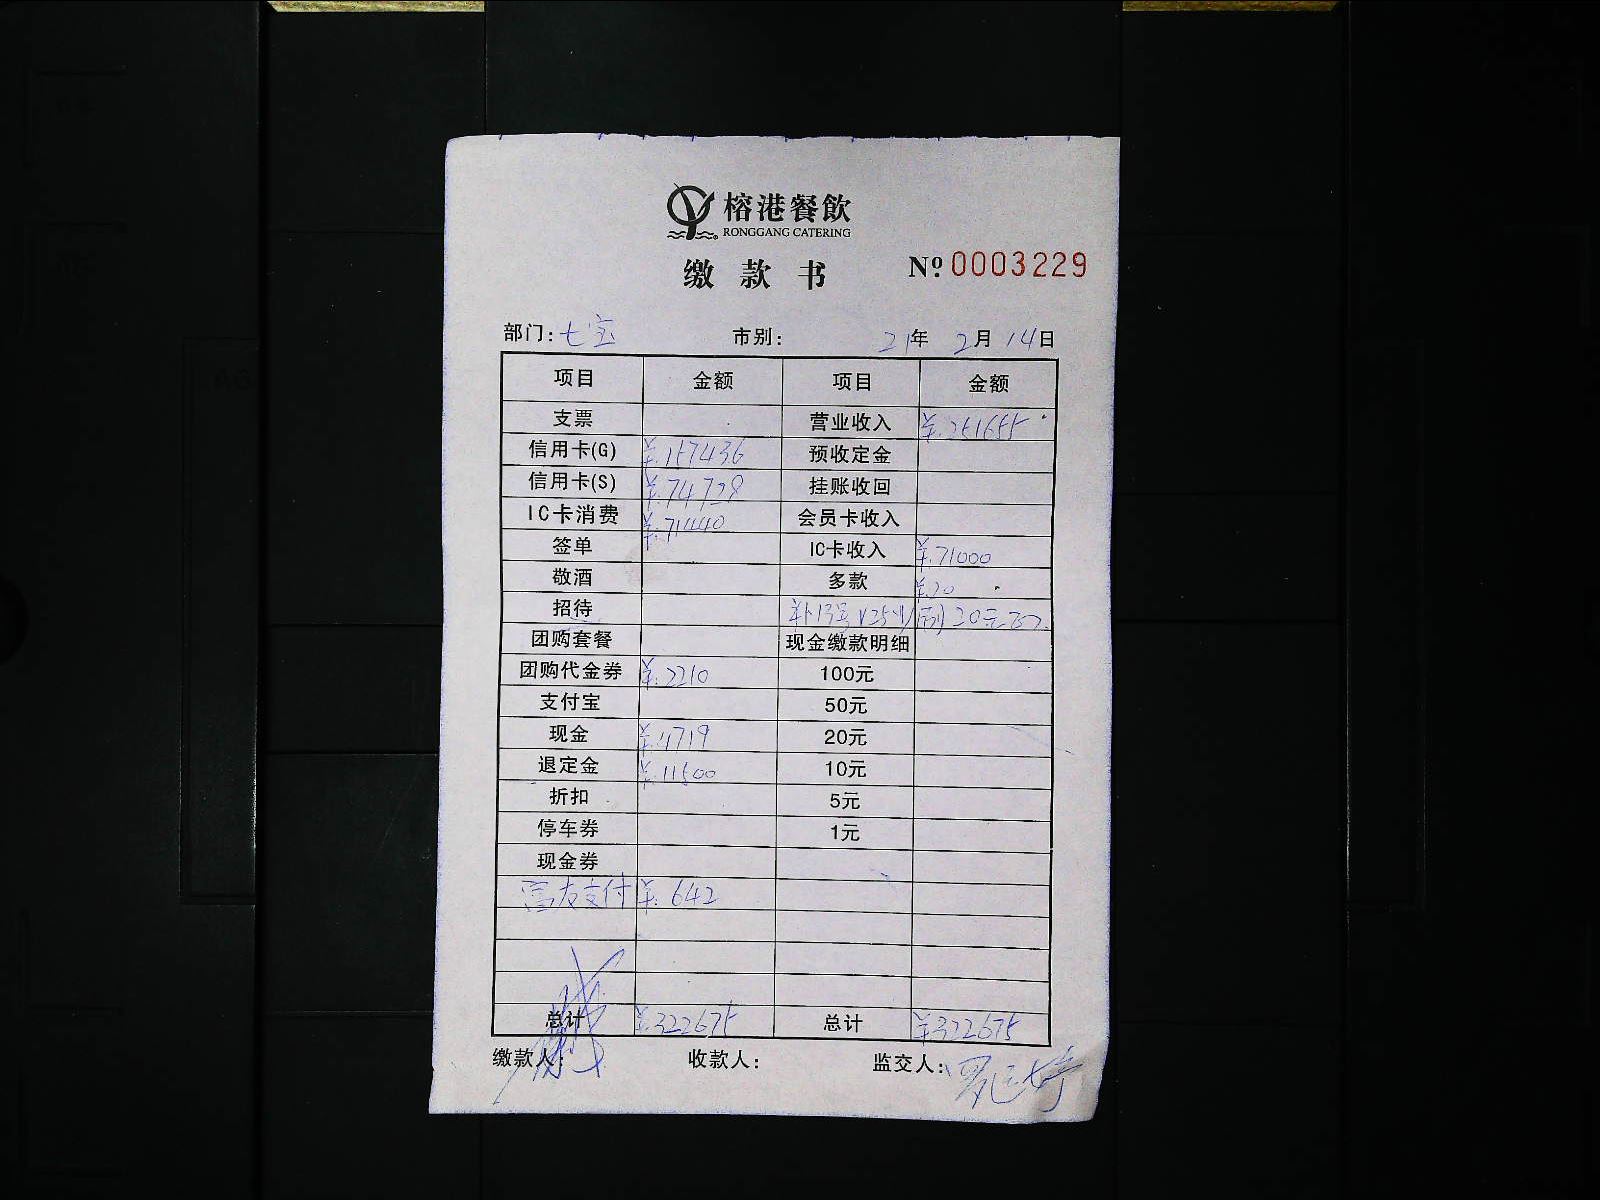 榕港餐飲
RONGGANG CATERING
缴款书 №:0003229
部门:七宝 市别: 21年 2月 14日
项目 金额 项目 金额
支票 营业收入 ¥:251655
信用卡(G) ¥:157436 预收定金
信用卡(S) ¥:74728 挂账收回
IC卡消费 ¥:71440 会员卡收入
签单 IC卡收入 ¥:71000
敬酒 多款 ¥:20
招待 补13号 20元
团购套餐 现金缴款明细
团购代金券 ¥:2210 100元
支付宝 50元
现金 ¥:4719 20元
退定金 ¥:11500 10元
折扣 5元
停车券 1元
现金券
富友支付 ¥:642
总计 ¥:322675 总计 ¥322675
缴款人: 收款人: 监交人: